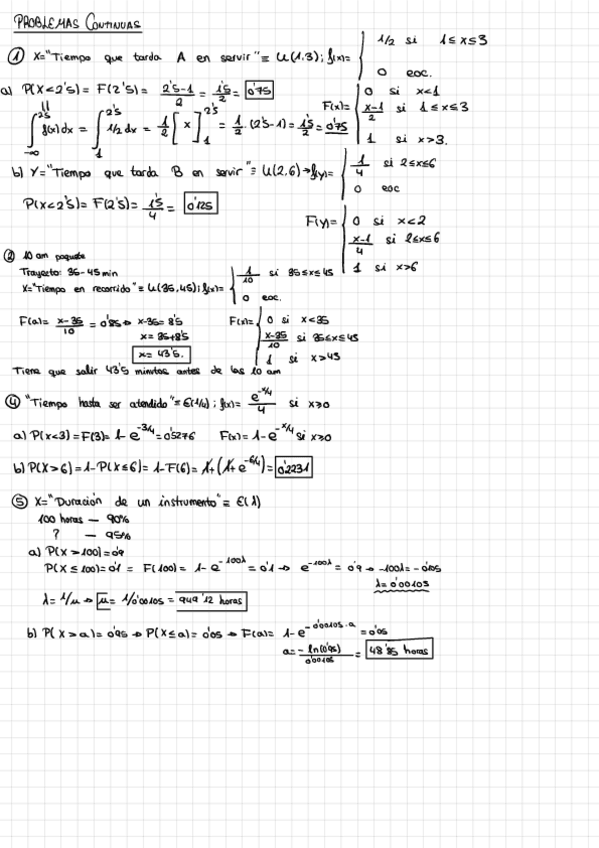 PROBLEMAS CONTINUAS
① X="Tiempo que tarda A en servir" ≡ U(1,3); f(x)= { 1/2 si 1≤x≤3
0 eoc.
a) P(X<2'5)= F(2'5)= (2'5-1)/2 = 1'5/2 = 0'75
F(x)= { 0 si x<1
(x-1)/2 si 1≤x≤3
1 si x>3.
∫_{-∞}^{2'5} f(x)dx = ∫_1^{2'5} 1/2 dx = 1/2 [x]_1^{2'5} = 1/2 · (2'5-1) = 1'5/2 = 0'75
b) Y="Tiempo que tarda B en servir" ≡ U(2,6) → f(y)= { 1/4 si 2≤x≤6
0 eoc
P(X<2'5)= F(2'5)= 1'5/4 = 0'125
F(y)= { 0 si x<2
(x-1)/4 si 2≤x≤6
1 si x>6
② 10 am paquete
Trayecto: 35-45 min
X="Tiempo en recorrido" ≡ U(35,45); f(x)= { 1/10 si 35≤x≤45
0 eoc.
F(a)= (x-35)/10 = 0'85 → x-35= 8'5
x= 35+8'5
x= 43'5.
F(x)= { 0 si x<35
(x-35)/10 si 35≤x≤45
1 si x>45
Tiene que salir 43'5 minutos antes de las 10 am
④ "Tiempo hasta ser atendido" ≡ Є(1/4); f(x)= e^{-x/4}/4 si x≥0
a) P(x<3)= F(3)= 1- e^{-3/4} = 0'5276 F(x)= 1-e^{-x/4} si x≥0
b) P(X>6)= 1-P(X≤6)= 1-F(6)= 1+(1+e^{-6/4})= 0'2231
⑤ X="Duración de un instrumento" ≡ Є(λ)
100 horas — 90%
? — 95%
a) P(X>100)=0'9
P(X≤100)=0'1 = F(100)= 1- e^{-100λ} = 0'1 → e^{-100λ} = 0'9 → -100λ= -0'105
λ= 0'00105
λ= 1/μ → μ= 1/0'00105 = 949'12 horas
b) P(X>a)= 0'95 → P(X≤a)= 0'05 → F(a)= 1-e^{-0'00105·a} = 0'05
a= -ln(0'95)/0'00105 = 48'85 horas